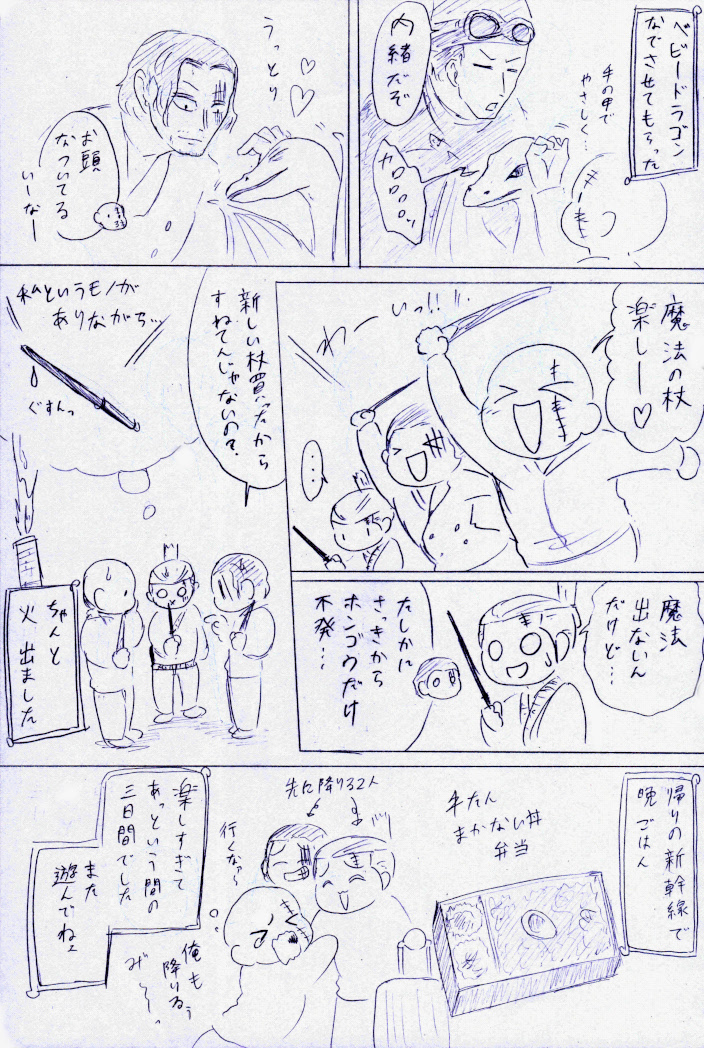 ベビードラゴン
なでさせてもらった
手の甲で
やさしく…
内緒だぞ
カロロロロン
うっとり
お頭
なついてる
いーなー
魔法の杖
楽しー♡
いっ!!
わー
…
新しい杖買ったから
すねてんじゃないの?
私というモノが
ありながら…
ぐすんっ
ちゃんと
火 出ました
魔法
出ないん
だけど…
たしかに
さっきから
ホンゴウだけ
不発…
帰りの新幹線で
晩ごはん
牛たん
まかない丼
弁当
先に降りる2人
行くなァ〜
俺も
降りるぅ
楽しすぎて
あっという間の
三日間でした
また
遊んでね